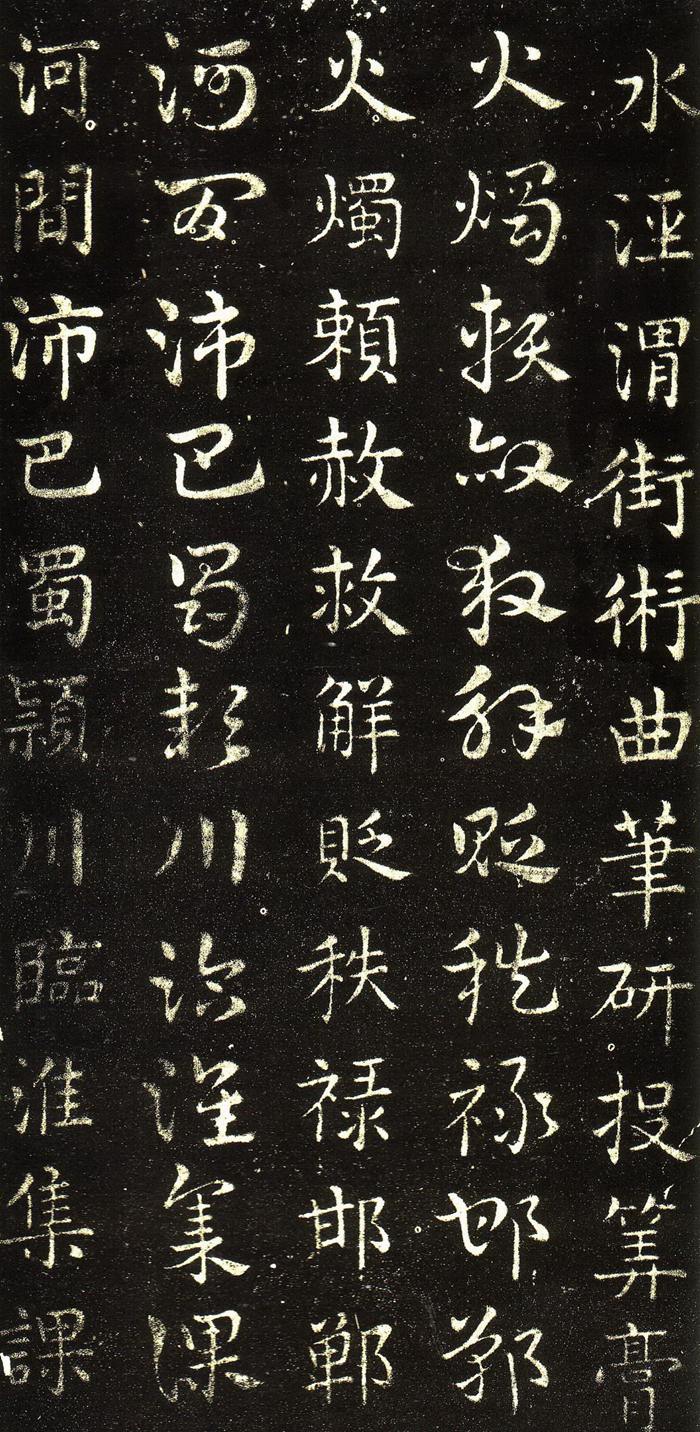 水涇渭街術曲筆研投筭膏
火燭頼赦救解貶秩禄邯鄲
火燭頼赦救解貶秩禄邯鄲
河間沛巴蜀潁川臨淮集課
河間沛巴蜀潁川臨淮集課